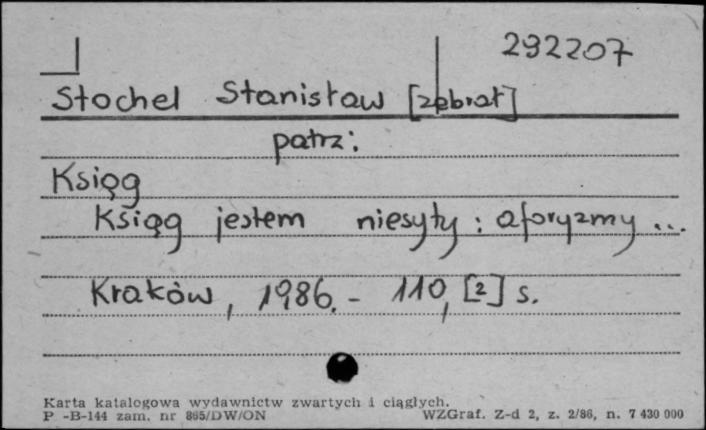 292207
Stochel Stanisław [zebrał]
patrz:
Ksiąg
Ksiąg jestem niesyty: aforyzmy ...
Kraków, 1986. - 110, [2] s.
Karta katalogowa wydawnictw zwartych i ciągłych.
P -B-144 zam. nr 865/DW/ON WZGraf. Z-d 2, z. 2/86, n. 7 430 000